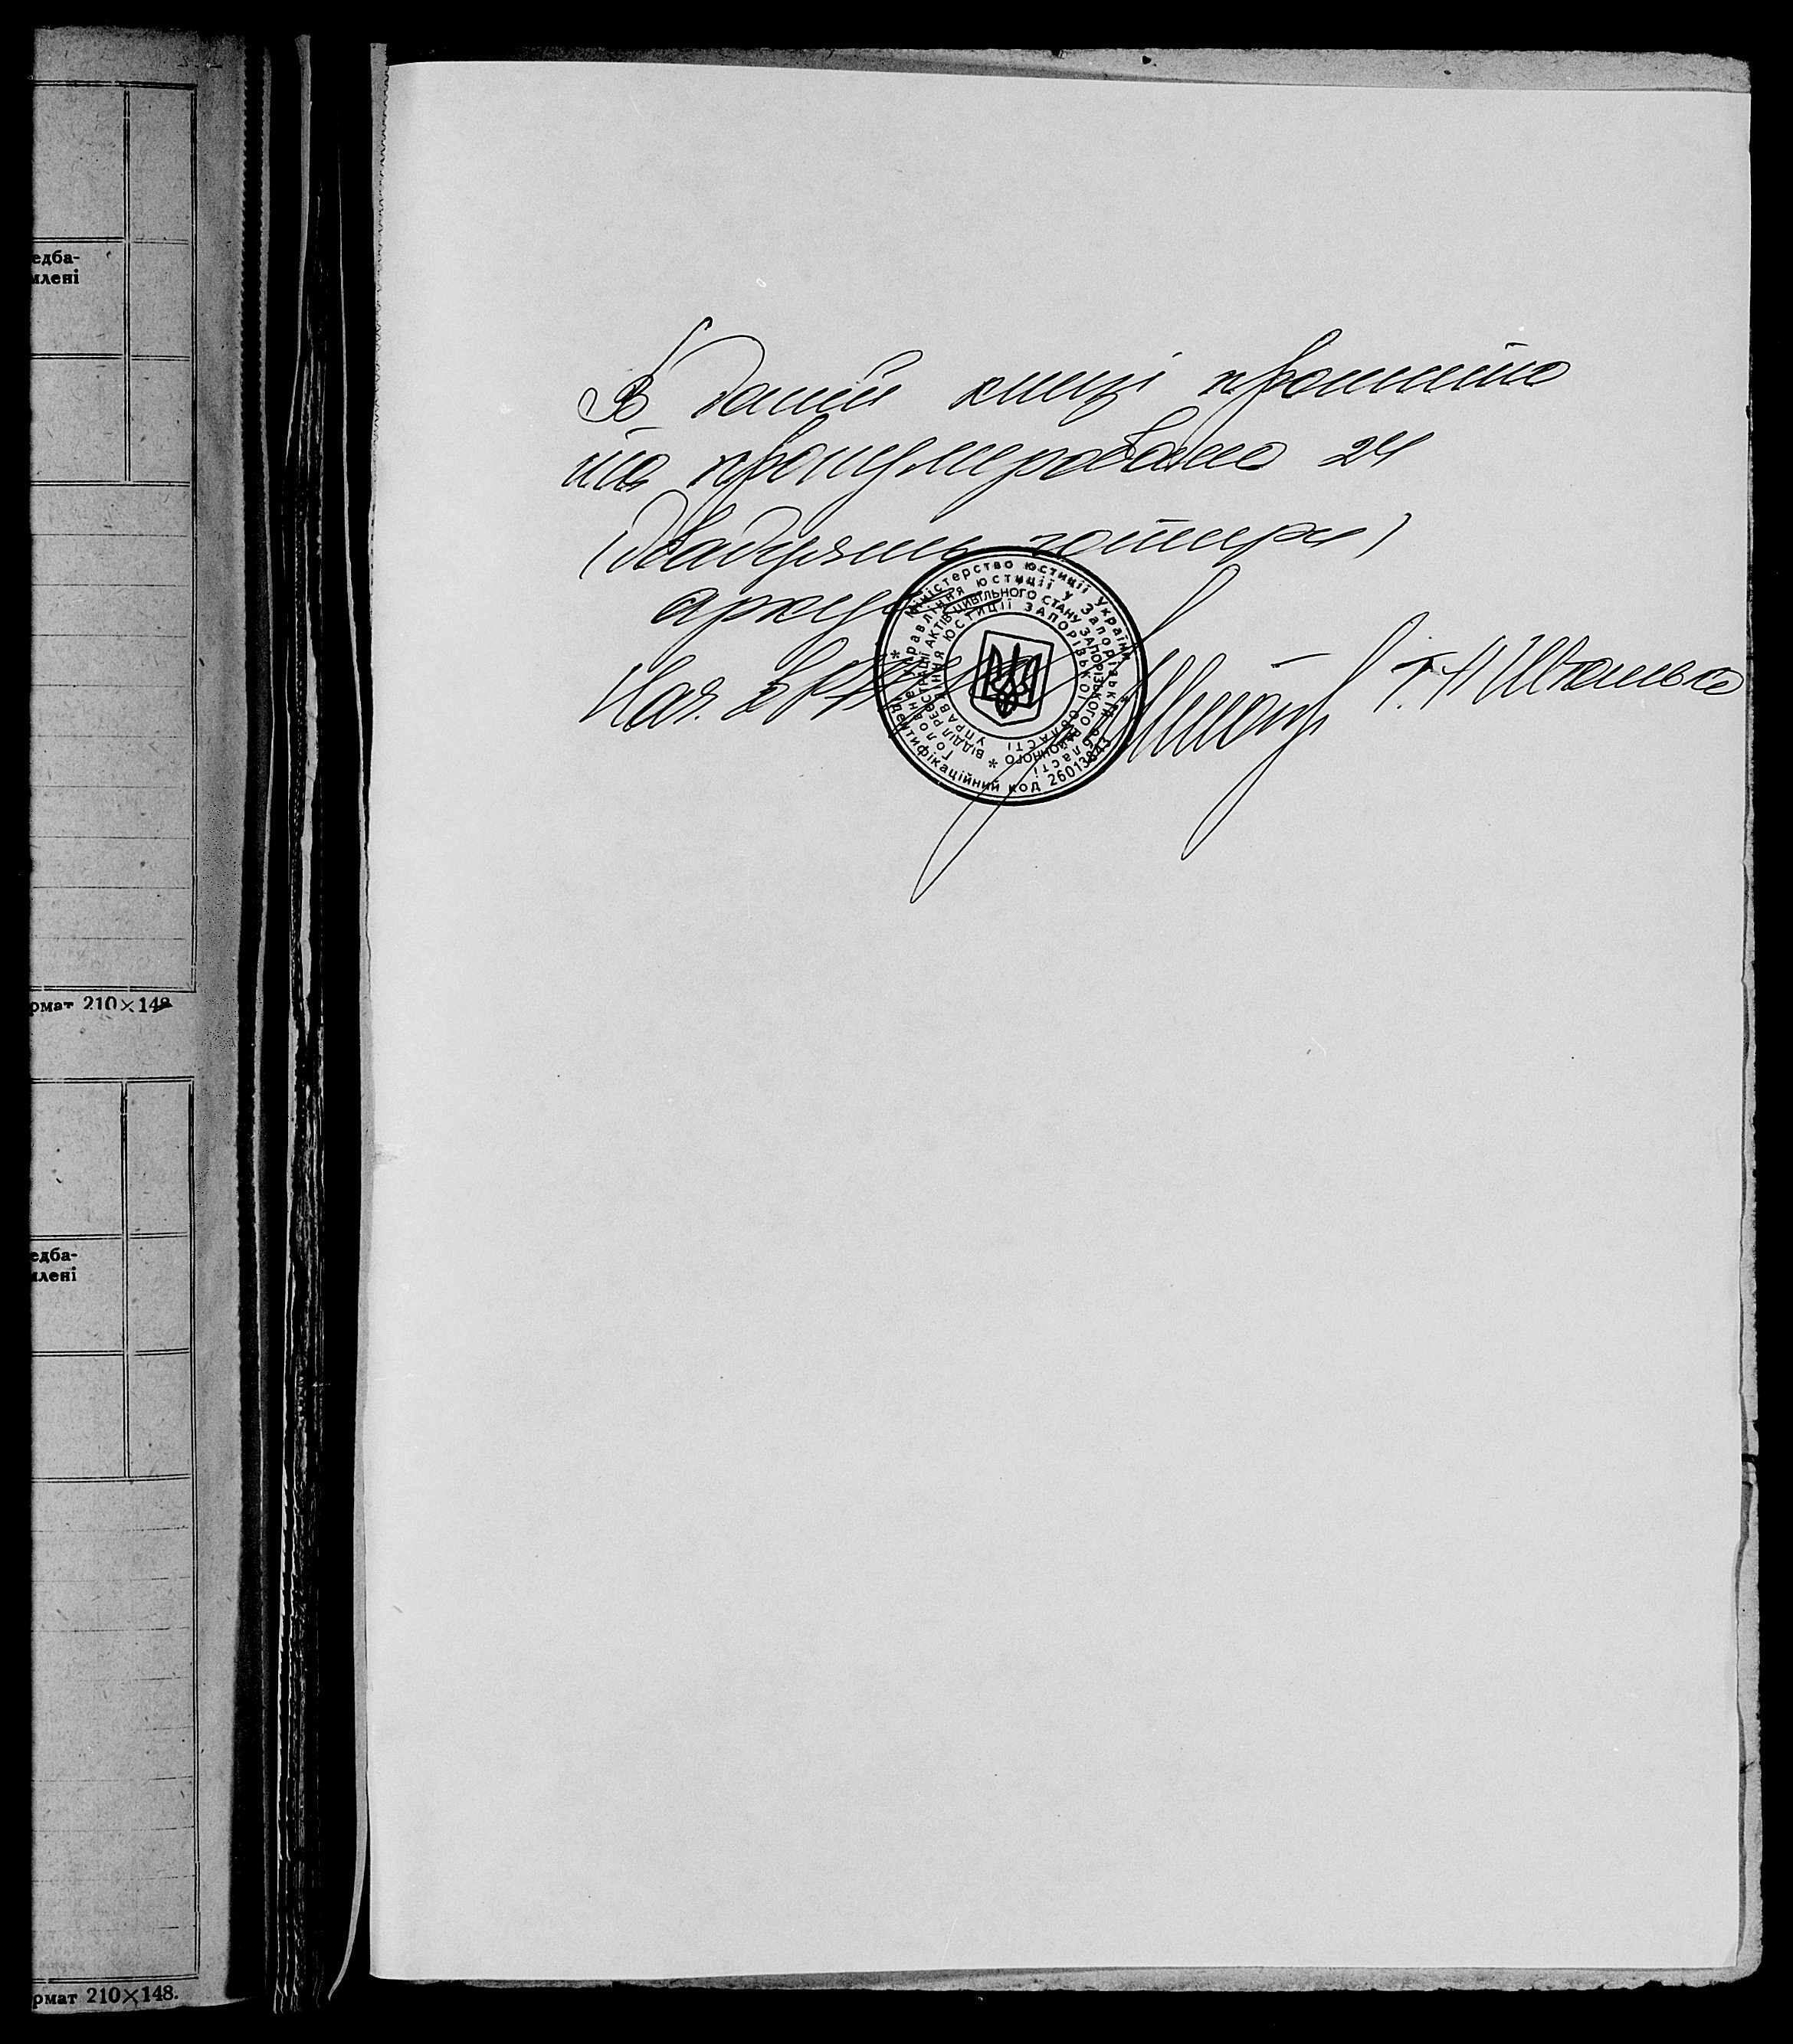 едба-
млені
рмат 210×148
едба-
млені
рмат 210×148.
В даній книзі прошито
та пронумеровано 24
(двадцять чотири)
арку
Нач.
Т.Н
Міністерство юстиції України
Головне управління юстиції у Запорізькій області
ВІДДІЛ РЕЄСТРАЦІЇ АКТІВ ЦИВІЛЬНОГО СТАНУ ЗАПОРІЗЬКОГО РАЙОННОГО
УПРАВЛІННЯ ЮСТИЦІЇ ЗАПОРІЗЬКОЇ ОБЛАСТІ
Ідентифікаційний код 26013843